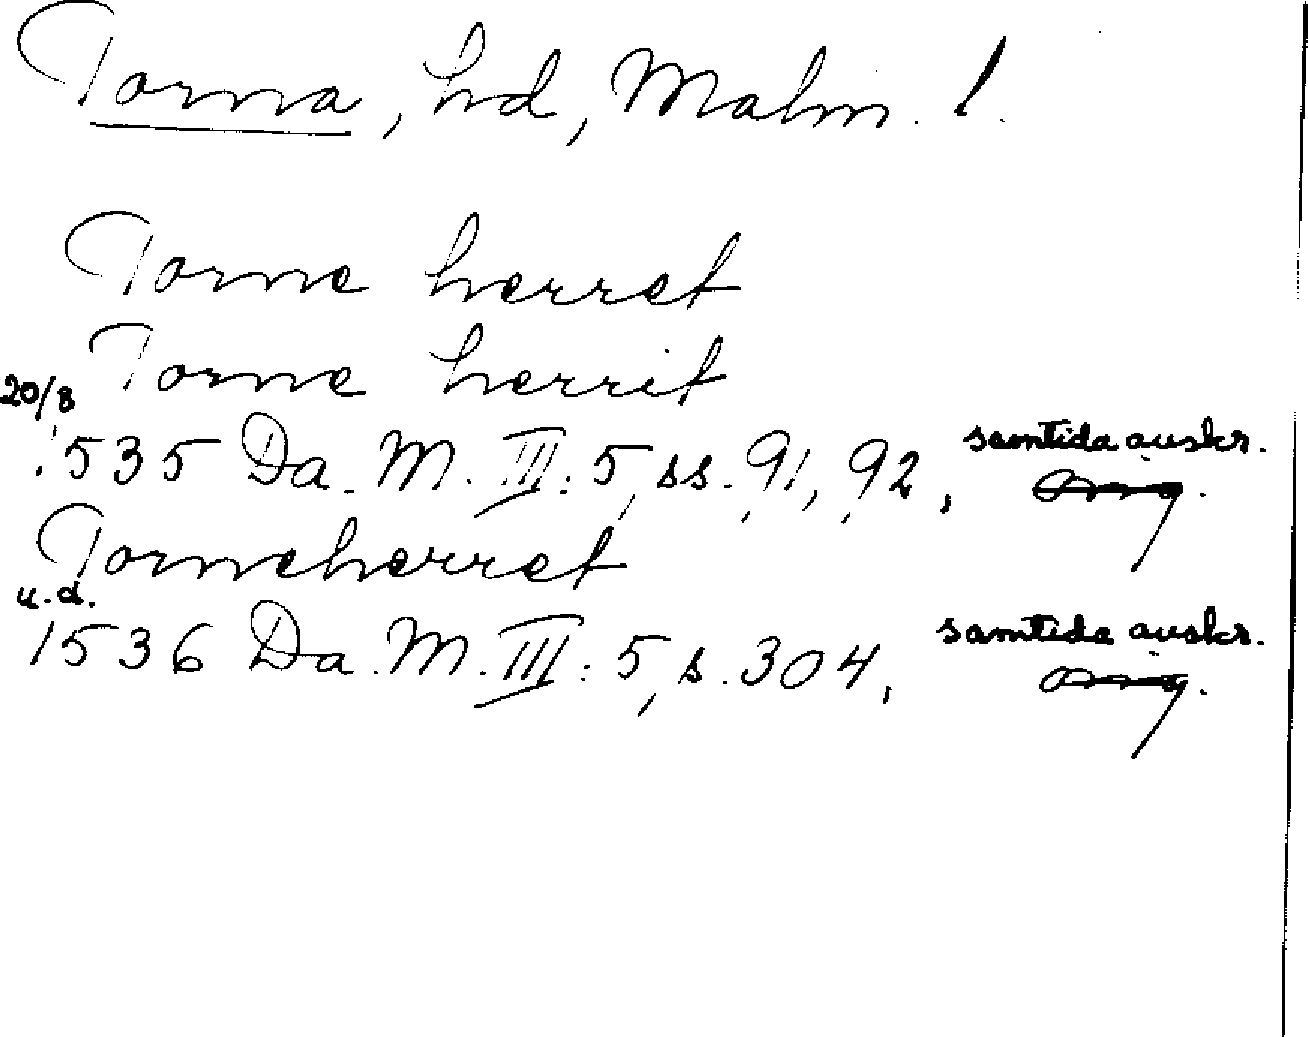 Torna, hd, Malm. l.
Torne herret
Torne herrit
20/8
1535 Da. M. III: 5, ss. 91, 92, samtida avskr.
Torneherret
u. d.
1536 Da. M. III: 5, s. 304, samtida avskr.